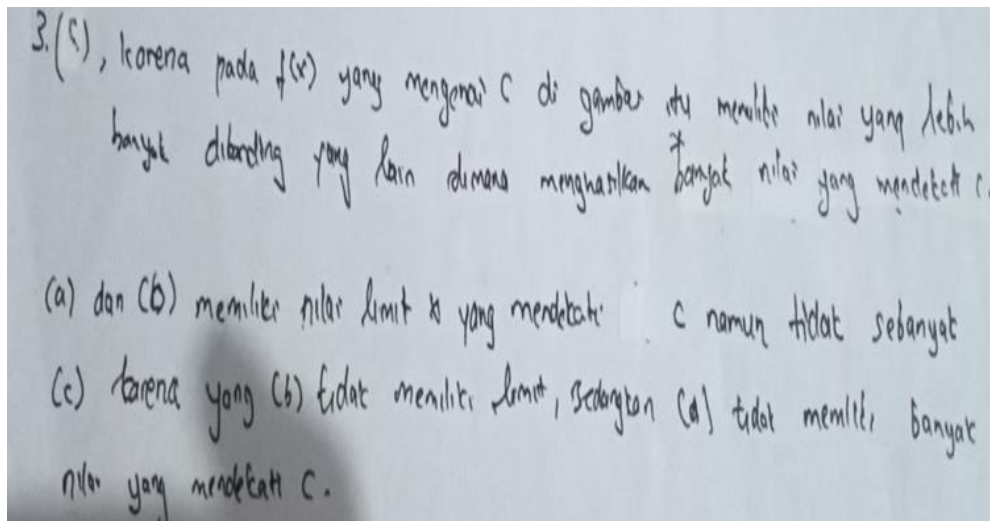 3. (c), karena pada f(x) yang mengenai c di gambar itu memiliki nilai yang lebih
banyak dibanding yang lain dimana menghasilkan banyak nilai yang mendekati c.
(a) dan (b) memiliki nilai limit x yang mendekati c namun tidak sebanyak
(c) karena yang (b) tidak memiliki limit, sedangkan (a) tidak memiliki banyak
nilai yang mendekati c.